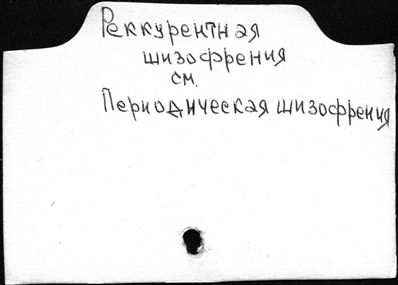 Реккурентная
шизофрения
см.
Периодическая шизофрения